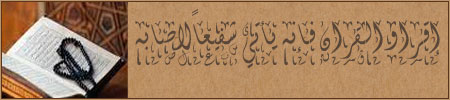 إقرأوا القرآن فإنه يأتي شفيعاً لأصحابه